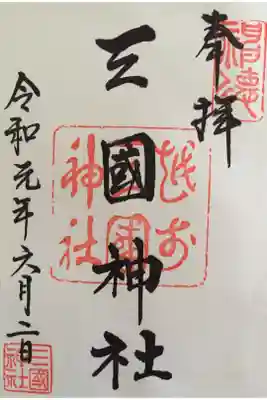 奉拝
三國神社
越前
三國
神社
令和元年六月二日
三國
神社